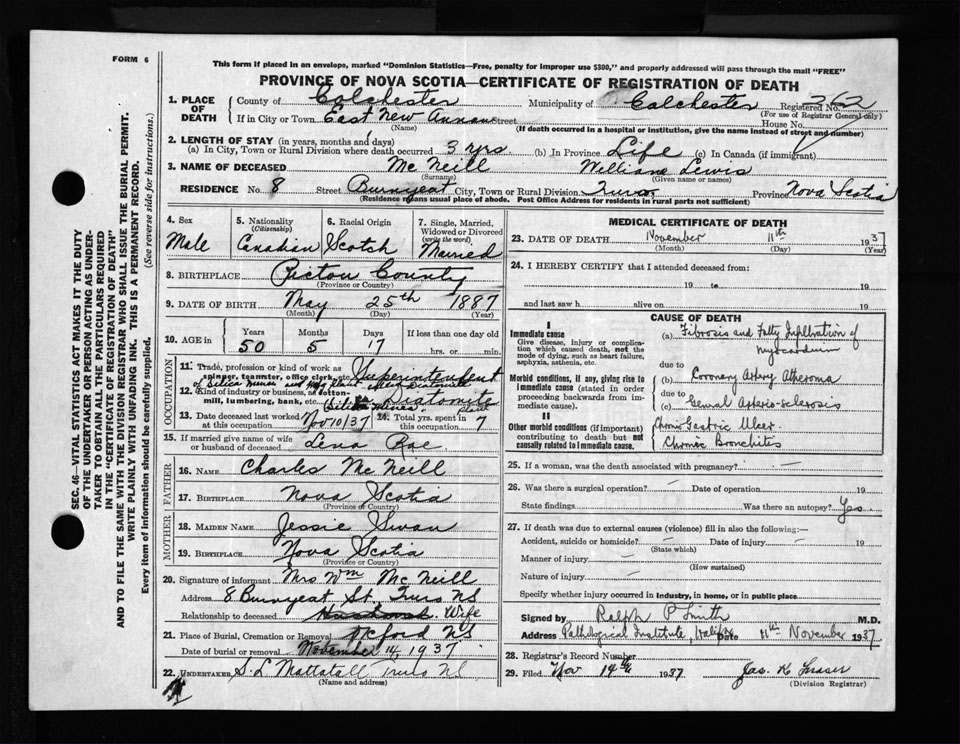 FORM 6
This form if placed in an envelope, marked "Dominion Statistics—Free, penalty for improper use $300," and properly addressed will pass through the mail "FREE"
PROVINCE OF NOVA SCOTIA—CERTIFICATE OF REGISTRATION OF DEATH
1. PLACE OF DEATH
County of Colchester Municipality of Colchester Registered No. 262
(For use of Registrar General only)
If in City or Town East New Annan Street House No.
(Name) (If death occurred in a hospital or institution, give the name instead of street and number)
2. LENGTH OF STAY (in years, months and days)
(a) In City, Town or Rural Division where death occurred 3 yrs. (b) In Province Life (c) In Canada (if immigrant)
3. NAME OF DECEASED Mc Neill William Lewis
(Surname) (Given name or names)
RESIDENCE No. 8 Street Burnyeat City, Town or Rural Division Truro Province Nova Scotia
(Residence means usual place of abode. Post Office Address for residents in rural parts not sufficient)
4. Sex Male
5. Nationality (Citizenship) Canadian
6. Racial Origin Scotch
7. Single, Married, Widowed or Divorced (write the word) Married
8. BIRTHPLACE Pictou County
(Province or Country)
9. DATE OF BIRTH May 25th 1887
(Month) (Day) (Year)
10. AGE in Years 50 Months 5 Days 17 If less than one day old hrs. or min.
OCCUPATION
11. Trade, profession or kind of work as spinner, teamster, office clerk, etc. Superintendent
of Silica mines and
12. Kind of industry or business, as cotton-mill, lumbering, bank, etc. Diatomite
(Silica mines) Plant
13. Date deceased last worked at this occupation Nov 10/37
14. Total yrs. spent in this occupation 7
15. If married give name of wife or husband of deceased Lena Rae
FATHER
16. NAME Charles Mc Neill
17. BIRTHPLACE Nova Scotia
(Province or Country)
MOTHER
18. MAIDEN NAME Jessie Swan
19. BIRTHPLACE Nova Scotia
(Province or Country)
20. Signature of informant Mrs Wm Mc Neill
Address 8 Burnyeat St. Truro NS
Relationship to deceased Husband Wife
21. Place of Burial, Cremation or Removal NS
Date of burial or removal November 14, 1937
22. UNDERTAKER S. L. Mattatall Truro NS
(Name and address)
MEDICAL CERTIFICATE OF DEATH
23. DATE OF DEATH November 11th 1937
(Month) (Day) (Year)
24. I HEREBY CERTIFY that I attended deceased from:
19 to 19
and last saw h alive on 19
CAUSE OF DEATH
I
Immediate cause
Give disease, injury or complication which caused death, not the mode of dying, such as heart failure, asphyxia, asthenia, etc.
(a) Fibrosis and Fatty Infiltration of myocardium
due to
Morbid conditions, if any, giving rise to immediate cause (stated in order proceeding backwards from immediate cause).
(b) Coronary Artery Atheroma
due to
(c) General Arterio-sclerosis
II
Other morbid conditions (if important) contributing to death but not causally related to immediate cause.
Chronic Gastric Ulcer
Chronic Bronchitis
25. If a woman, was the death associated with pregnancy? —
26. Was there a surgical operation? — Date of operation 19
State findings Was there an autopsy? Yes
27. If death was due to external causes (violence) fill in also the following:—
Accident, suicide or homicide? — Date of injury — 19
(State which)
Manner of injury —
(How sustained)
Nature of injury —
Specify whether injury occurred in industry, in home, or in public place
Signed by Ralph P Smith M.D.
Address Pathological Institute, Halifax Date 11th November 1937
28. Registrar's Record Number
29. Filed Nov 14th 1937 Jas. K Fraser
(Division Registrar)
SEC. 46—VITAL STATISTICS ACT MAKES IT THE DUTY
OF THE UNDERTAKER OR PERSON ACTING AS UNDER-
TAKER TO OBTAIN ALL THE PARTICULARS REQUIRED
IN THE "CERTIFICATE OF REGISTRATION OF DEATH"
AND TO FILE THE SAME WITH THE DIVISION REGISTRAR WHO SHALL ISSUE THE BURIAL PERMIT.
WRITE PLAINLY WITH UNFADING INK. THIS IS A PERMANENT RECORD.
Every item of information should be carefully supplied. (See reverse side for instructions.)